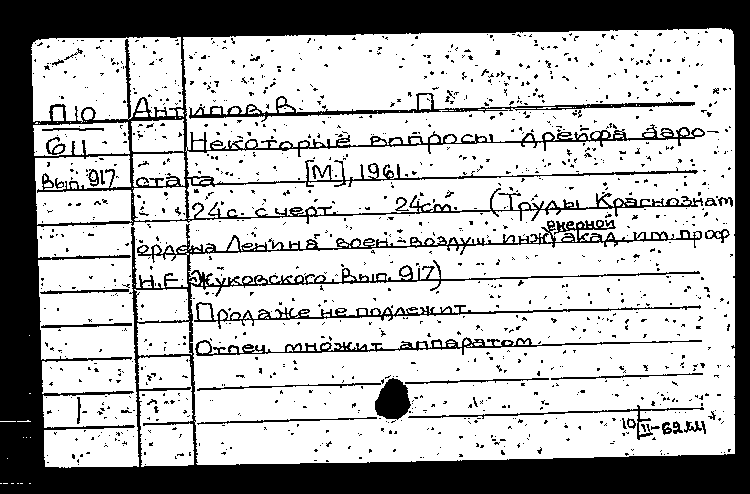 П10 Антипов, В. П
611 Некоторые вопросы дрейфа аэро-
Вып. 917 стата [М.], 1961.
24 с. с черт. 24 см. (Труды Краснознам
енерной
ордена Ленина воен.-воздуш. инж акад. им. проф
Н.Е. Жуковского. Вып. 917)
Продаже не подлежит.
Отпеч. множит. аппаратом
1
10/II-62